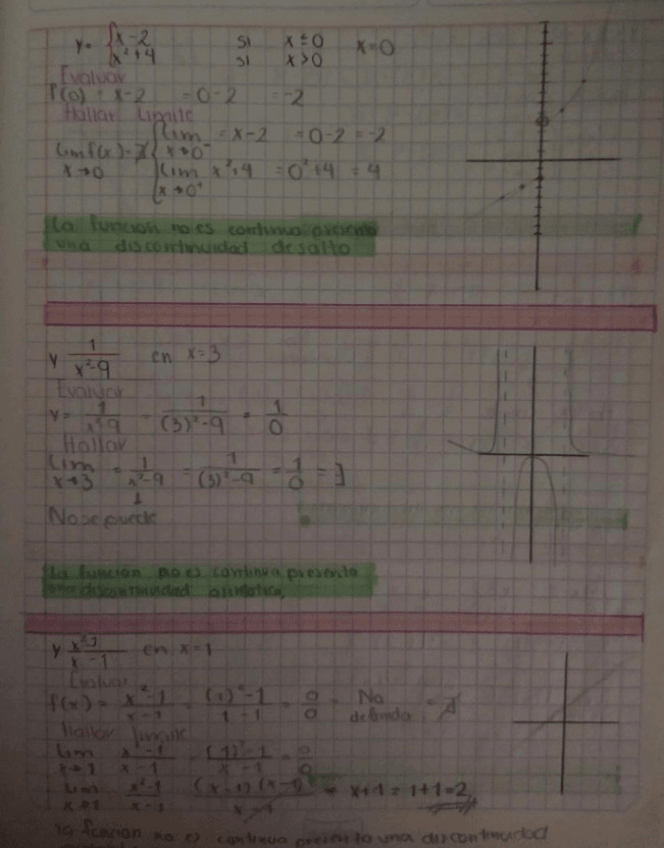 y= { x-2 si x≤0 x=0
x²+4 si x>0
Evaluar
f(0) = x-2 =0-2 =-2
Hallar Limite
Lim f(x)=∄ { Lim = x-2 =0-2 =-2
x→0 x→0⁻
Lim x²+4 =0²+4 = 4
x→0⁺
La función no es continua presenta
una discontinuidad de salto
y 1/(x²-9) en x=3
Evaluar
y= 1/(x²-9) = 1/((3)²-9) = 1/0
Hallar
Lim = 1/(x²-9) = 1/((3)²-9) = 1/0 = ∄
x→3
No se puede
La función no es continua presenta
una discontinuidad asintotica,
y (x²-1)/(x-1) en x=1
Evaluar
f(x) = (x²-1)/(x-1) = ((1)²-1)/(1-1) = 0/0 = No definida = ∄
Hallar limite
Lim (x²-1)/(x-1) = ((1)²-1)/(x-1) = 0/0
x→1
Lim (x²-1)/(x-1) = ((x+1)(x-1))/(x-1) = x+1 = 1+1=2
x→1
la función no es continua presenta una discontinuidad